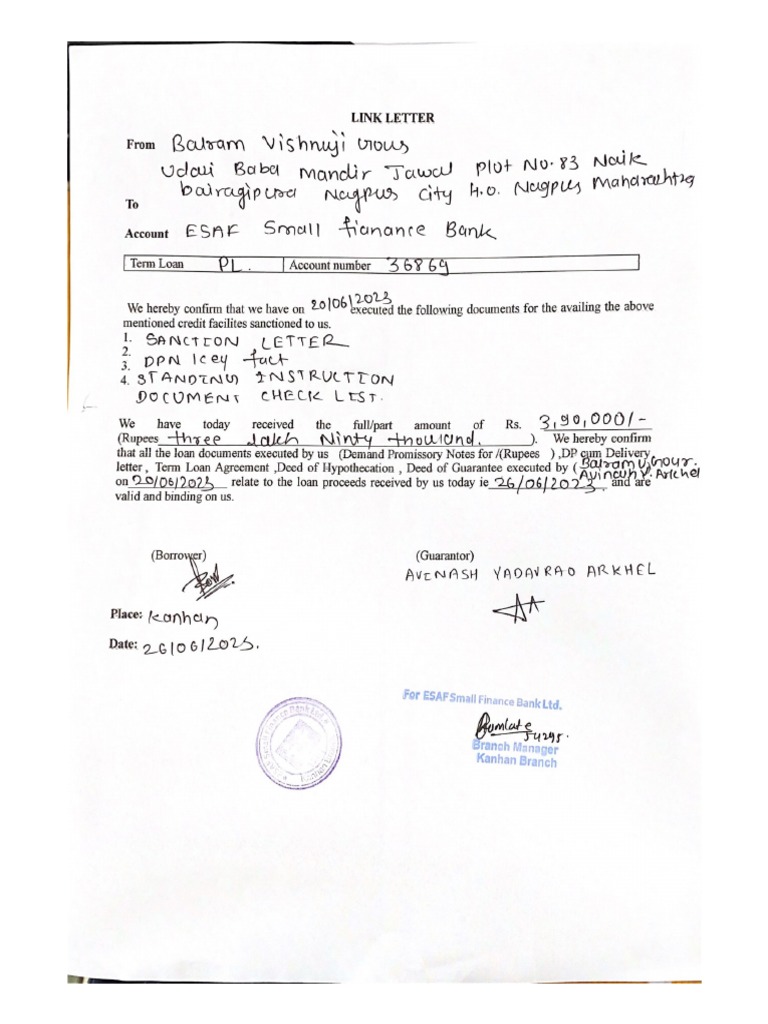 LINK LETTER
From Balram Vishnuji Gour
Udasi Baba Mandir Jawal Plot No. 83 Naik
bairagipura Nagpur City H.O. Nagpur Maharashtra
To
Account ESAF Small fianance Bank
Term Loan PL. Account number 36869
We hereby confirm that we have on 20/06/2023 executed the following documents for the availing the above
mentioned credit facilites sanctioned to us.
1. SANCTION LETTER
2.
3. DPN key fact
4. STANDING INSTRUCTION
DOCUMENT CHECK LIST.
We have today received the full/part amount of Rs. 3,90,000/-
(Rupees three lakh Ninty thousand. ). We hereby confirm
that all the loan documents executed by us (Demand Promissory Notes for /(Rupees ) ,DP cum Delivery
letter , Term Loan Agreement ,Deed of Hypothecation , Deed of Guarantee executed by ( Balram V. Gour.
Avinash Y. Arkhel
on 20/06/2023 relate to the loan proceeds received by us today ie 26/06/2023 and are
valid and binding on us.
(Borrower) (Guarantor)
AVINASH YADAVRAO ARKHEL
Place: Kanhan
Date: 26/06/2023.
For ESAF Small Finance Bank Ltd.
54295.
Branch Manager
Kanhan Branch